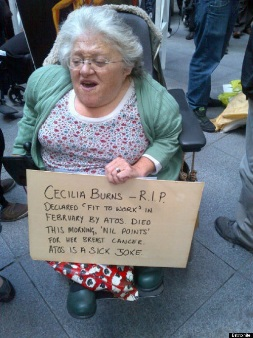 CECILIA BURNS - R.I.P.
DECLARED "FIT TO WORK" IN
FEBRUARY BY ATOS DIED
THIS MORNING, 'NIL POINTS'
FOR HER BREAST CANCER.
ATOS IS A SICK JOKE